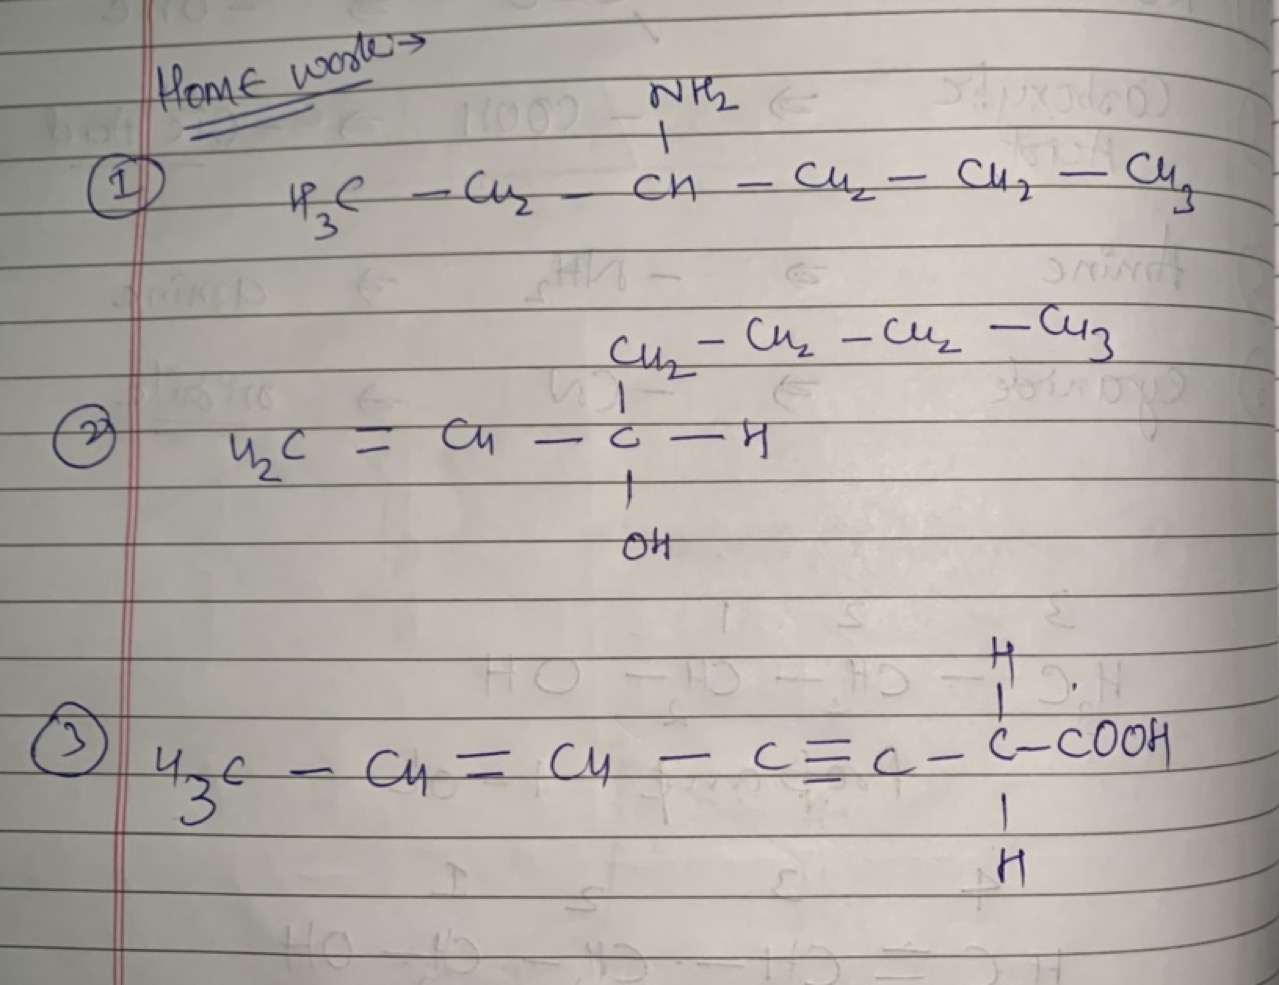 Home work →
NH₂
|
① H₃C – CH₂ – CH – CH₂ – CH₂ – CH₃
CH₂ – CH₂ – CH₂ – CH₃
|
② H₂C = CH – C – H
|
OH
H
|
③ H₃C – CH = CH – C ≡ C – C – COOH
|
H